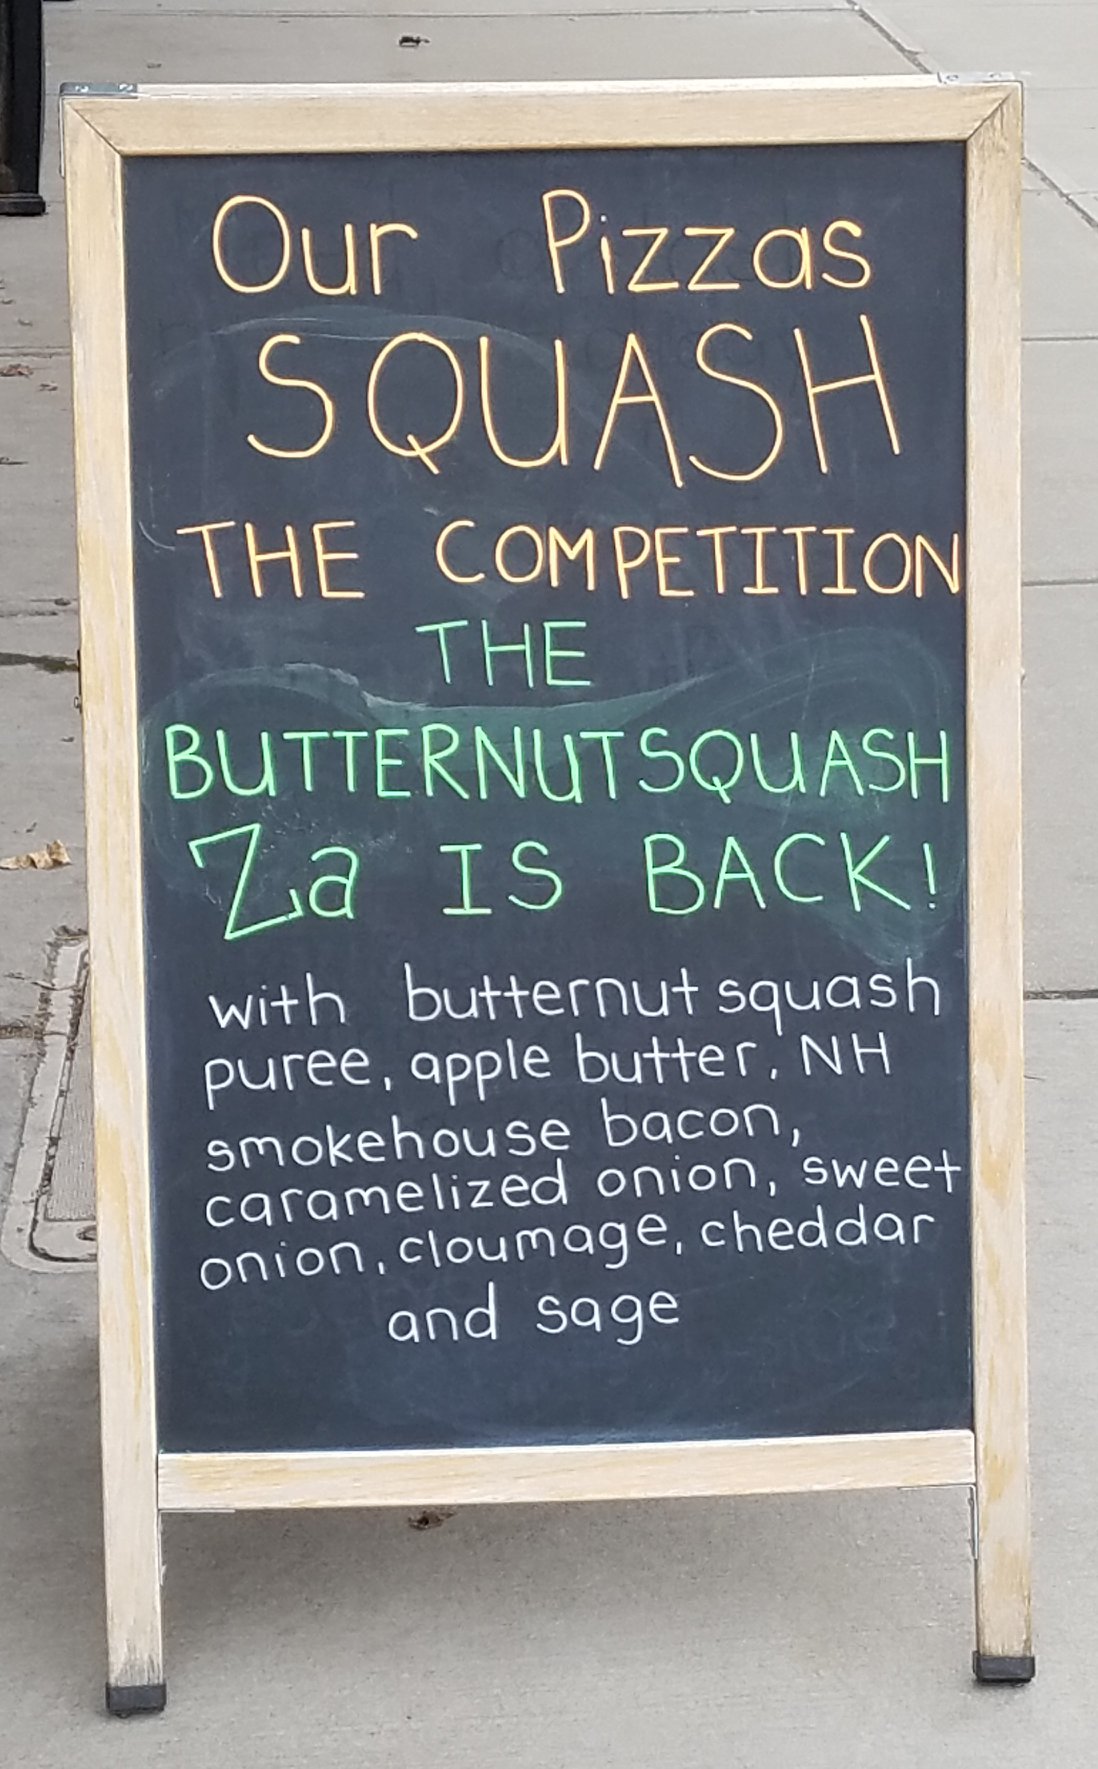 Our Pizzas
SQUASH
THE COMPETITION
THE
BUTTERNUT SQUASH
Za IS BACK!
with butternut squash
puree, apple butter, NH
smokehouse bacon,
caramelized onion, sweet
onion, cloumage, cheddar
and sage